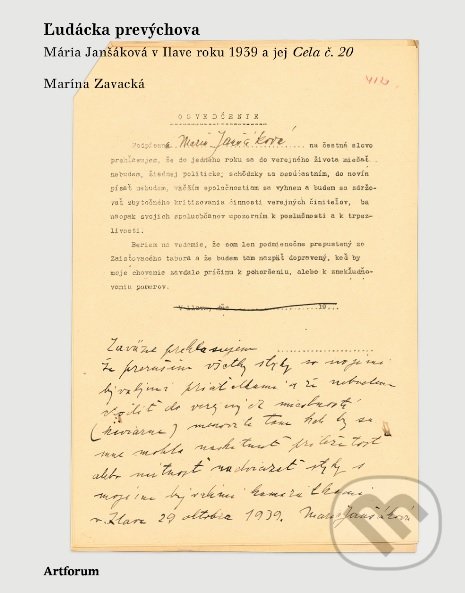 Ľudácka prevýchova
Mária Janšáková v Ilave roku 1939 a jej Cela č. 20
Marína Zavacká
O S V E D Č E N I E
Podpísaná Mária Janšáková na čestné slovo
prehlasujem, že do jedného roku sa do verejného života miešať
nebudem, žiadnej politickej schôdzky sa nesúčastním, do novín
písať nebudem, väčším spoločnostiam sa vyhnem a budem sa zdržo-
vať zbytočného kritizovania činnosti verejných činiteľov, ba
naopak svojich spoluobčanov upozorním k poslušnosti a k trpez-
livosti.
Beriem na vedomie, že som len podmienečne prepustený zo
Zaisťovacieho tábora a že budem tam nazpäť dopravený, keď by
moje chovanie zavdalo príčinu k pohoršeniu, alebo k znekľudňo-
vaniu pomerov.
V Ilave, dňa 19
Záväzne prehlasujem
že preruším všetky styky so svojimi
bývalými priateľkami a že nebudem
chodiť do verejných miestností
(kaviarne) menovite tam kde by sa
mne mohla naskytnúť príležitosť
alebo nutnosť nadviazať styky s
mojimi bývalými kamarátkami
v Ilave 29 októbra 1939. Mária Janšáková
Artforum